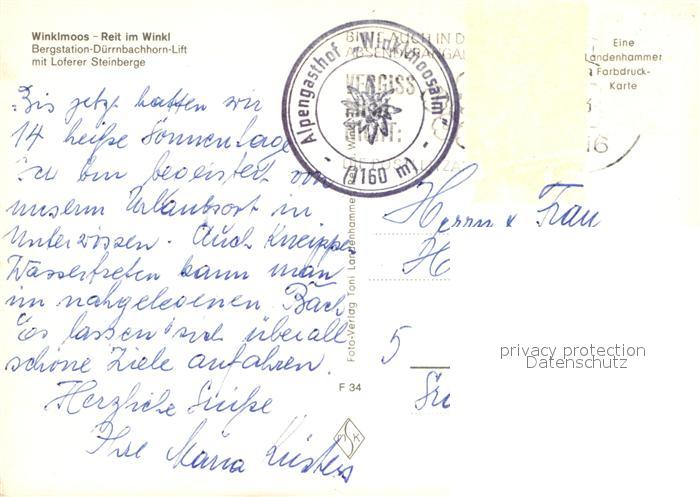 Winklmoos – Reit im Winkl
Bergstation-Dürrnbachhorn-Lift
mit Loferer Steinberge
Bis jetzt hatten wir
14 heiße Sonnentage
Ich bin begeistert von
unserm Urlaubsort in
Unterwössen. Auch Kneippen
Wassertreten kann man
im nahgelegenen Bach
Es lassen sich überall
schöne Ziele anfahren.
Herzliche Grüße
Ihre Maria
Alpengasthof "Winklmoosalm"
- (1160 m) -
VERGISS
Eine
Landenhammer
Farbdruck-
Karte
Foto-Verlag Toni Landenhammer
F 34
Herrn u Frau
H
5
privacy protection
Datenschutz